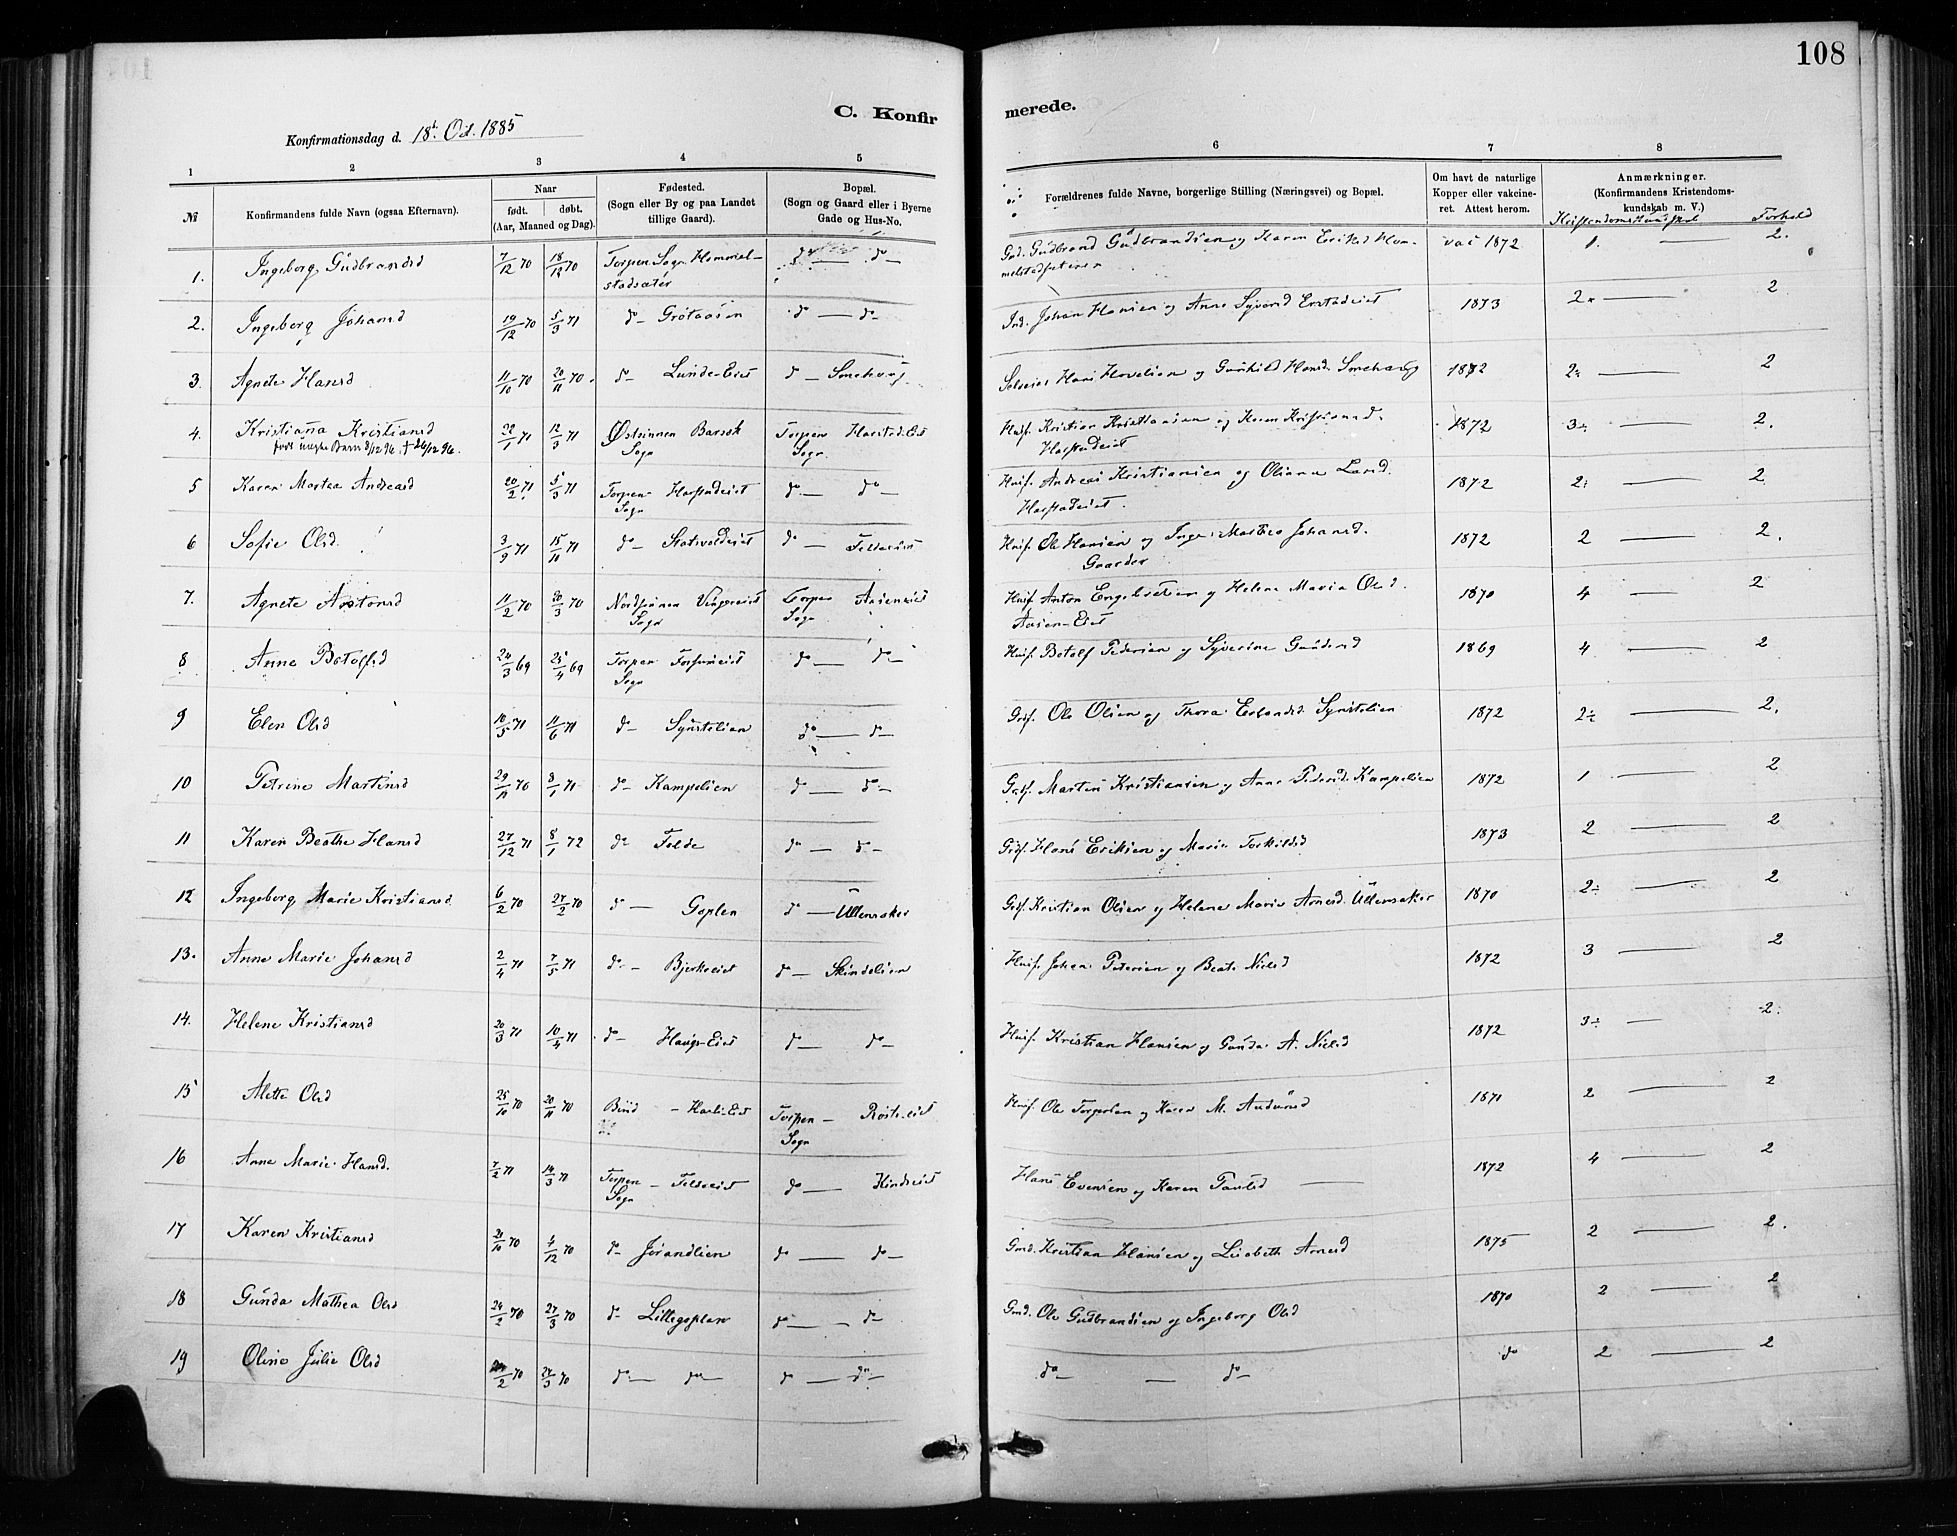 108
C. Konfir
merede.
Konfirmationsdag d. 18d. Oct. 1885
1 2 3 4 5 6 7 8
№ Konfirmandens fulde Navn (ogsaa Efternavn). Naar født. døbt. (Aar, Maaned og Dag). Fødested. (Sogn eller By og paa Landet tillige Gaard). Bopæl. (Sogn og Gaard eller i Byerne Gade og Hus-No. Forældrenes fulde Navne, borgerlige Stilling (Næringsvei) og Bopæl. Om havt de naturlige Kopper eller vakcineret. Attest herom. Anmærkninger. (Konfirmandens Kristendomskundskab m. V.)
Kristendomskundskab Forhold
1. Ingeborg Gudbrandsd 7/12 70 18/12 70 Torpen Sogn Hommelstadsæter do — do Gmd. Gudbrand Gudbrandsen og Karen Eriksd Hommelstadsæteren vac 1872 1. — 2.
2. Ingeborg Johansd 19/12 70 5/3 71 do — Grötaasen do — do — Ind. Johan Hansen og Anne Syversd 1873 2 — 2
3. Agnete Hansd 11/10 70 20/11 70 do — Lunde Eiet do — Smehaug Hans Hovelsen og Gunhild Hansd. Smehaug 1872 2 — 2
4. Kristiana Kristiansd 12/3 71 Østsinnen Sogn Torpen Sogn Harstad Eiet Husf. Kristian Kristiansen og Karen Kristiansd. Harstadeiet 1872 3 — 2.
5 Karen Martea Andreasd 20/2 71 5/3 71 Torpen Sogn Harstadeiet do — do — Husf. Andreas Kristiansen og Oliana Larsd. Harstadeiet. 1872 2 — 2
6 Sofie Olsd. 3/9 71 15/10 71 do — do — Husf. Ole Hansen og Inger Marthea Johansd. Gaarder 1872 2 — 2.
7. Agnete Antonsd 11/2 70 20/3 70 Nordsinnen Sogn Torpen Sogn Aaseneiet Husf. Anton Engebretsen og Helene Maria Olsd. Aasen-Eiet 1870 4 — 2
8 Anne Botolfsd 24/3 69 25/4 69 Torpen Sogn do — do — Husf. Botolf Pedersen og Syverine 1869 4 — 2
9 Elen Olsd 10/5 71 11/6 71 do — Synstelien do — do — Grdf. Ole Olsen og Thora Erlandsd. Synstelien 1872 2 — 2.
10 Petrine Martinsd 29/11 70 8/1 71 do — Kampelien do — do — Grdf. Martin Kristiansen og Anne Pedersd. Kampelien 1872 1 — 2
11 Karen Beathe Hansd 27/12 71 8/1 72 do Felde do — do — Grdf. Hans Eriksen og Maria Torkildsd 1873 2 — 2
12 Ingeborg Marie Kristiansd 6/2 70 27/2 70 do — Goplen do — Ullensaker Grdf. Kristian Olsen og Helene Maria Arnesd. Ullensaker 1870 2 — 2
13. Anne Marie Johansd 2/4 71 7/5 71 do — Bjerkeeiet do — Skindelien Husf. Johan Petersen og Beate Nielsd 1872 3 — 2
14. Helene Kristiansd 20/3 71 10/4 71 do — Haugs-Eiet do — do — Husf. Kristian Hansen og Gunda A. Nielsd 1872 3 — 2.
15 Alette Olsd 25/10 70 20/11 70 Torpen Sogn — Husf. Ole Torgersen og Karen M. Audunsd 1870 2 — 2
16 Anne Marie Hansd. 7/2 71 14/3 71 Torpen Sogn — Feldeeiet do — Kindseiet Hans Evensen og Karen Paulsd — 1872 4 — 2
17 Karen Kristiansd 4/12 70 do — Jørandlien do — do — Gmd. Kristian Hansen og Lisabeth Arnesd 1875 2 — 2.
18 Gunda Mathea Olsd 24/2 70 27/3 70 do — Lillegoplen do — do — Gmd. Ole Gudbrandsen og Ingeborg Olsd 1870 2 — 2
19 Oline Julie Olsd 24/2 70 27/3 70 do — do — do — do — do — do — do 2 — 2